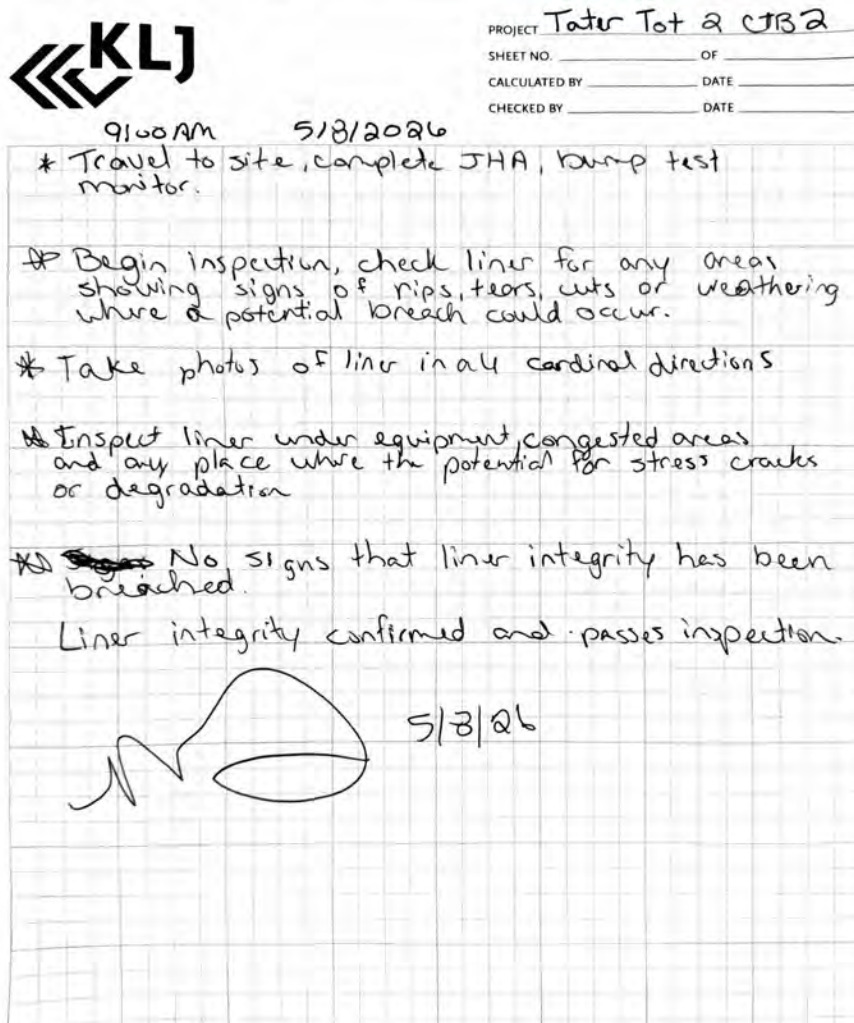 KLJ
PROJECT Tater Tot 2 CTB2
SHEET NO. OF
CALCULATED BY DATE
CHECKED BY DATE
9:00 AM 5/8/2026
* Travel to site, complete JHA, bump test
monitor.
* Begin inspection, check liner for any areas
showing signs of rips, tears, cuts or weathering
where a potential breach could occur.
* Take photos of liner in all cardinal directions
* Inspect liner under equipment, congested areas
and any place where the potential for stress cracks
or degradation
* No signs that liner integrity has been
breached.
Liner integrity confirmed and passes inspection.
5/8/26